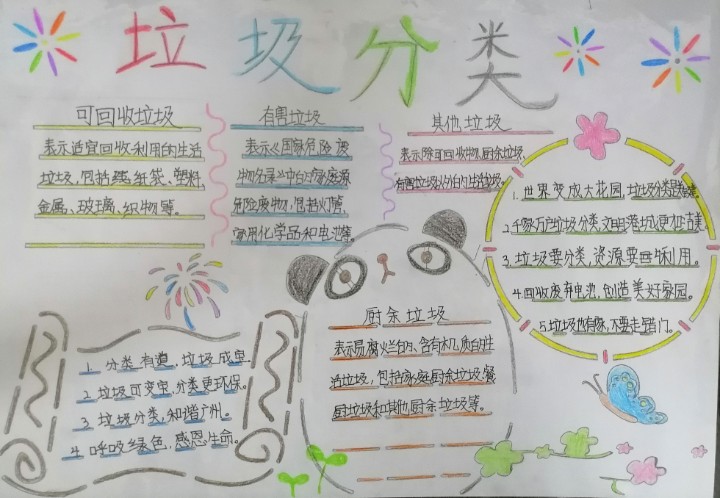 垃圾分类
可回收垃圾
表示适宜回收利用的生活
垃圾，包括纸袋、塑料，
金属、玻璃、织物等。
有害垃圾
表示《国家危险废
物名录》中的家庭源
危险废物，包括灯管，
家用化学品和电池等。
其他垃圾
表示除可回收物、厨余垃圾，
有害垃圾以外的生活垃圾。
1. 世界变成大花园，垃圾分类是
2. 千家万户垃圾分类，文明港城更加
3. 垃圾要分类，资源要回收利用。
4. 回收废弃电池，创造美好家园。
5. 垃圾也有家，不要走错门。
厨余垃圾
表示易腐烂的、含有机质的生
活垃圾，包括家庭厨余垃圾、餐
厨垃圾和其他厨余垃圾等。
1. 分类有道，垃圾成宝
2. 垃圾可变宝，分类更环保。
3. 垃圾分类，和谐广州。
4. 呼吸绿色，感恩生命。